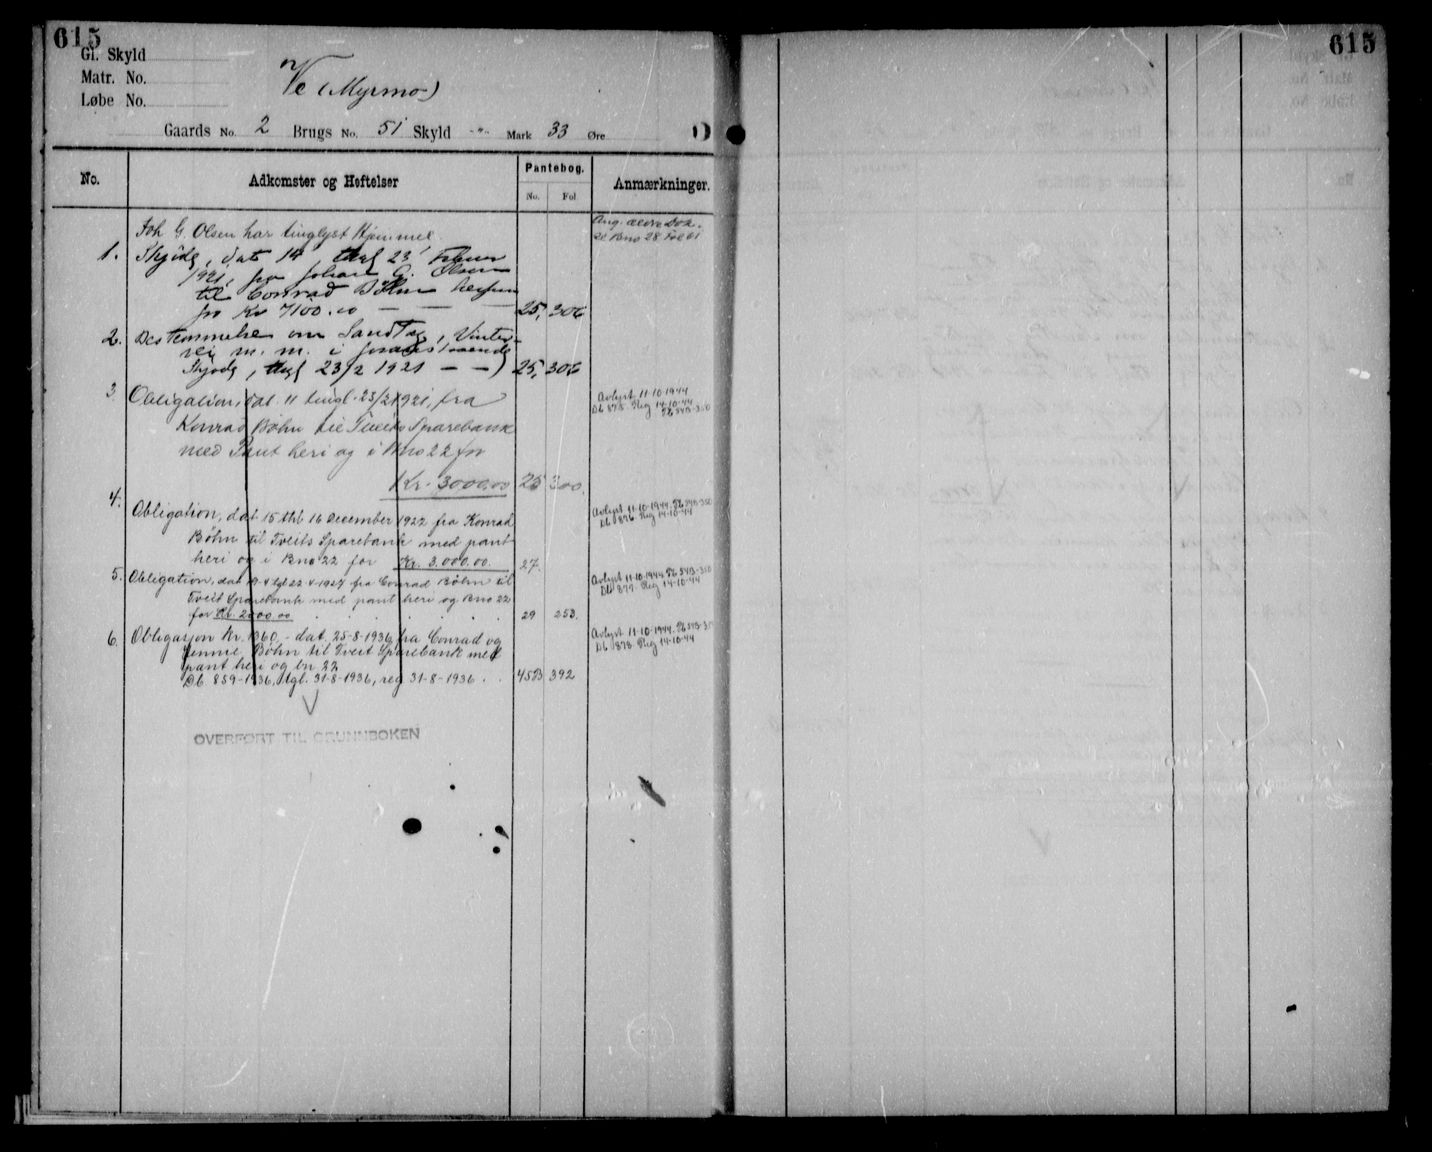 615
615
Gl. Skyld
Matr. No.
Løbe No.
Ve (Myrmo)
Gaards No. 2 Brugs No. 51 Skyld -"- Mark 33 Øre
No.
Adkomster og Heftelser
Pantebog.
No. Fol
Anmærkninger.
Joh G. Olsen har tinglyst Hjemmel
Ang. ældre Dok.
se Bno 28 Fol 61
1. Skjøde, dat 14 tingl 23
1921, fra Johan G. Olsen
til Conrad Bøhn
for Kr 7100.00 — — — 25, 306
2. Bestemmelse om Sandtag, Vinter-
vei m. m. i foranstaaende
Skjøde, tingl 23/2 1921 — — 25, 306
3. Obligation, dat. 11 tingl. 23/2 1921, fra
Konrad Bøhn til Tveits Sparebank
med Pant heri og i Bno 22 for
Kr. 3000.00 25 300.
Avlyst 11-10-1944
Db 875. Reg 14-10-44
Pb 54B-350
4. Obligation, dat 15 thl 16 December 1922 fra Konrad
Bøhn til Tveits Sparebank med pant
heri og i Bno 22 for Kr. 3.000.00. 27.
Avlyst 11-10-1944. Pb 54B-350
Db 876 Reg 14-10-44
5. Obligation, dat 19-4 tgl 22-4-1927 fra Conrad Bøhn til
Tveit Sparebank med pant heri og Bno 22
for Kr. 2000.00 . . . . . . . 29 253.
Avlyst 11-10-1944. Pb 54B-350
Db 877. Reg 14-10-44
6. Obligasjon Kr. 1360,- dat. 25-8-1936 fra Conrad og
Jennie Bøhn til Tveit Sparebank med
pant heri og bn 22
Db 859-1936, tgl. 31-8-1936, reg 31-8-1936 . . 45B 392
Avlyst 11-10-1944. Pb 54B-350
Db 878 Reg 14-10-44
OVERFØRT TIL GRUNNBOKEN